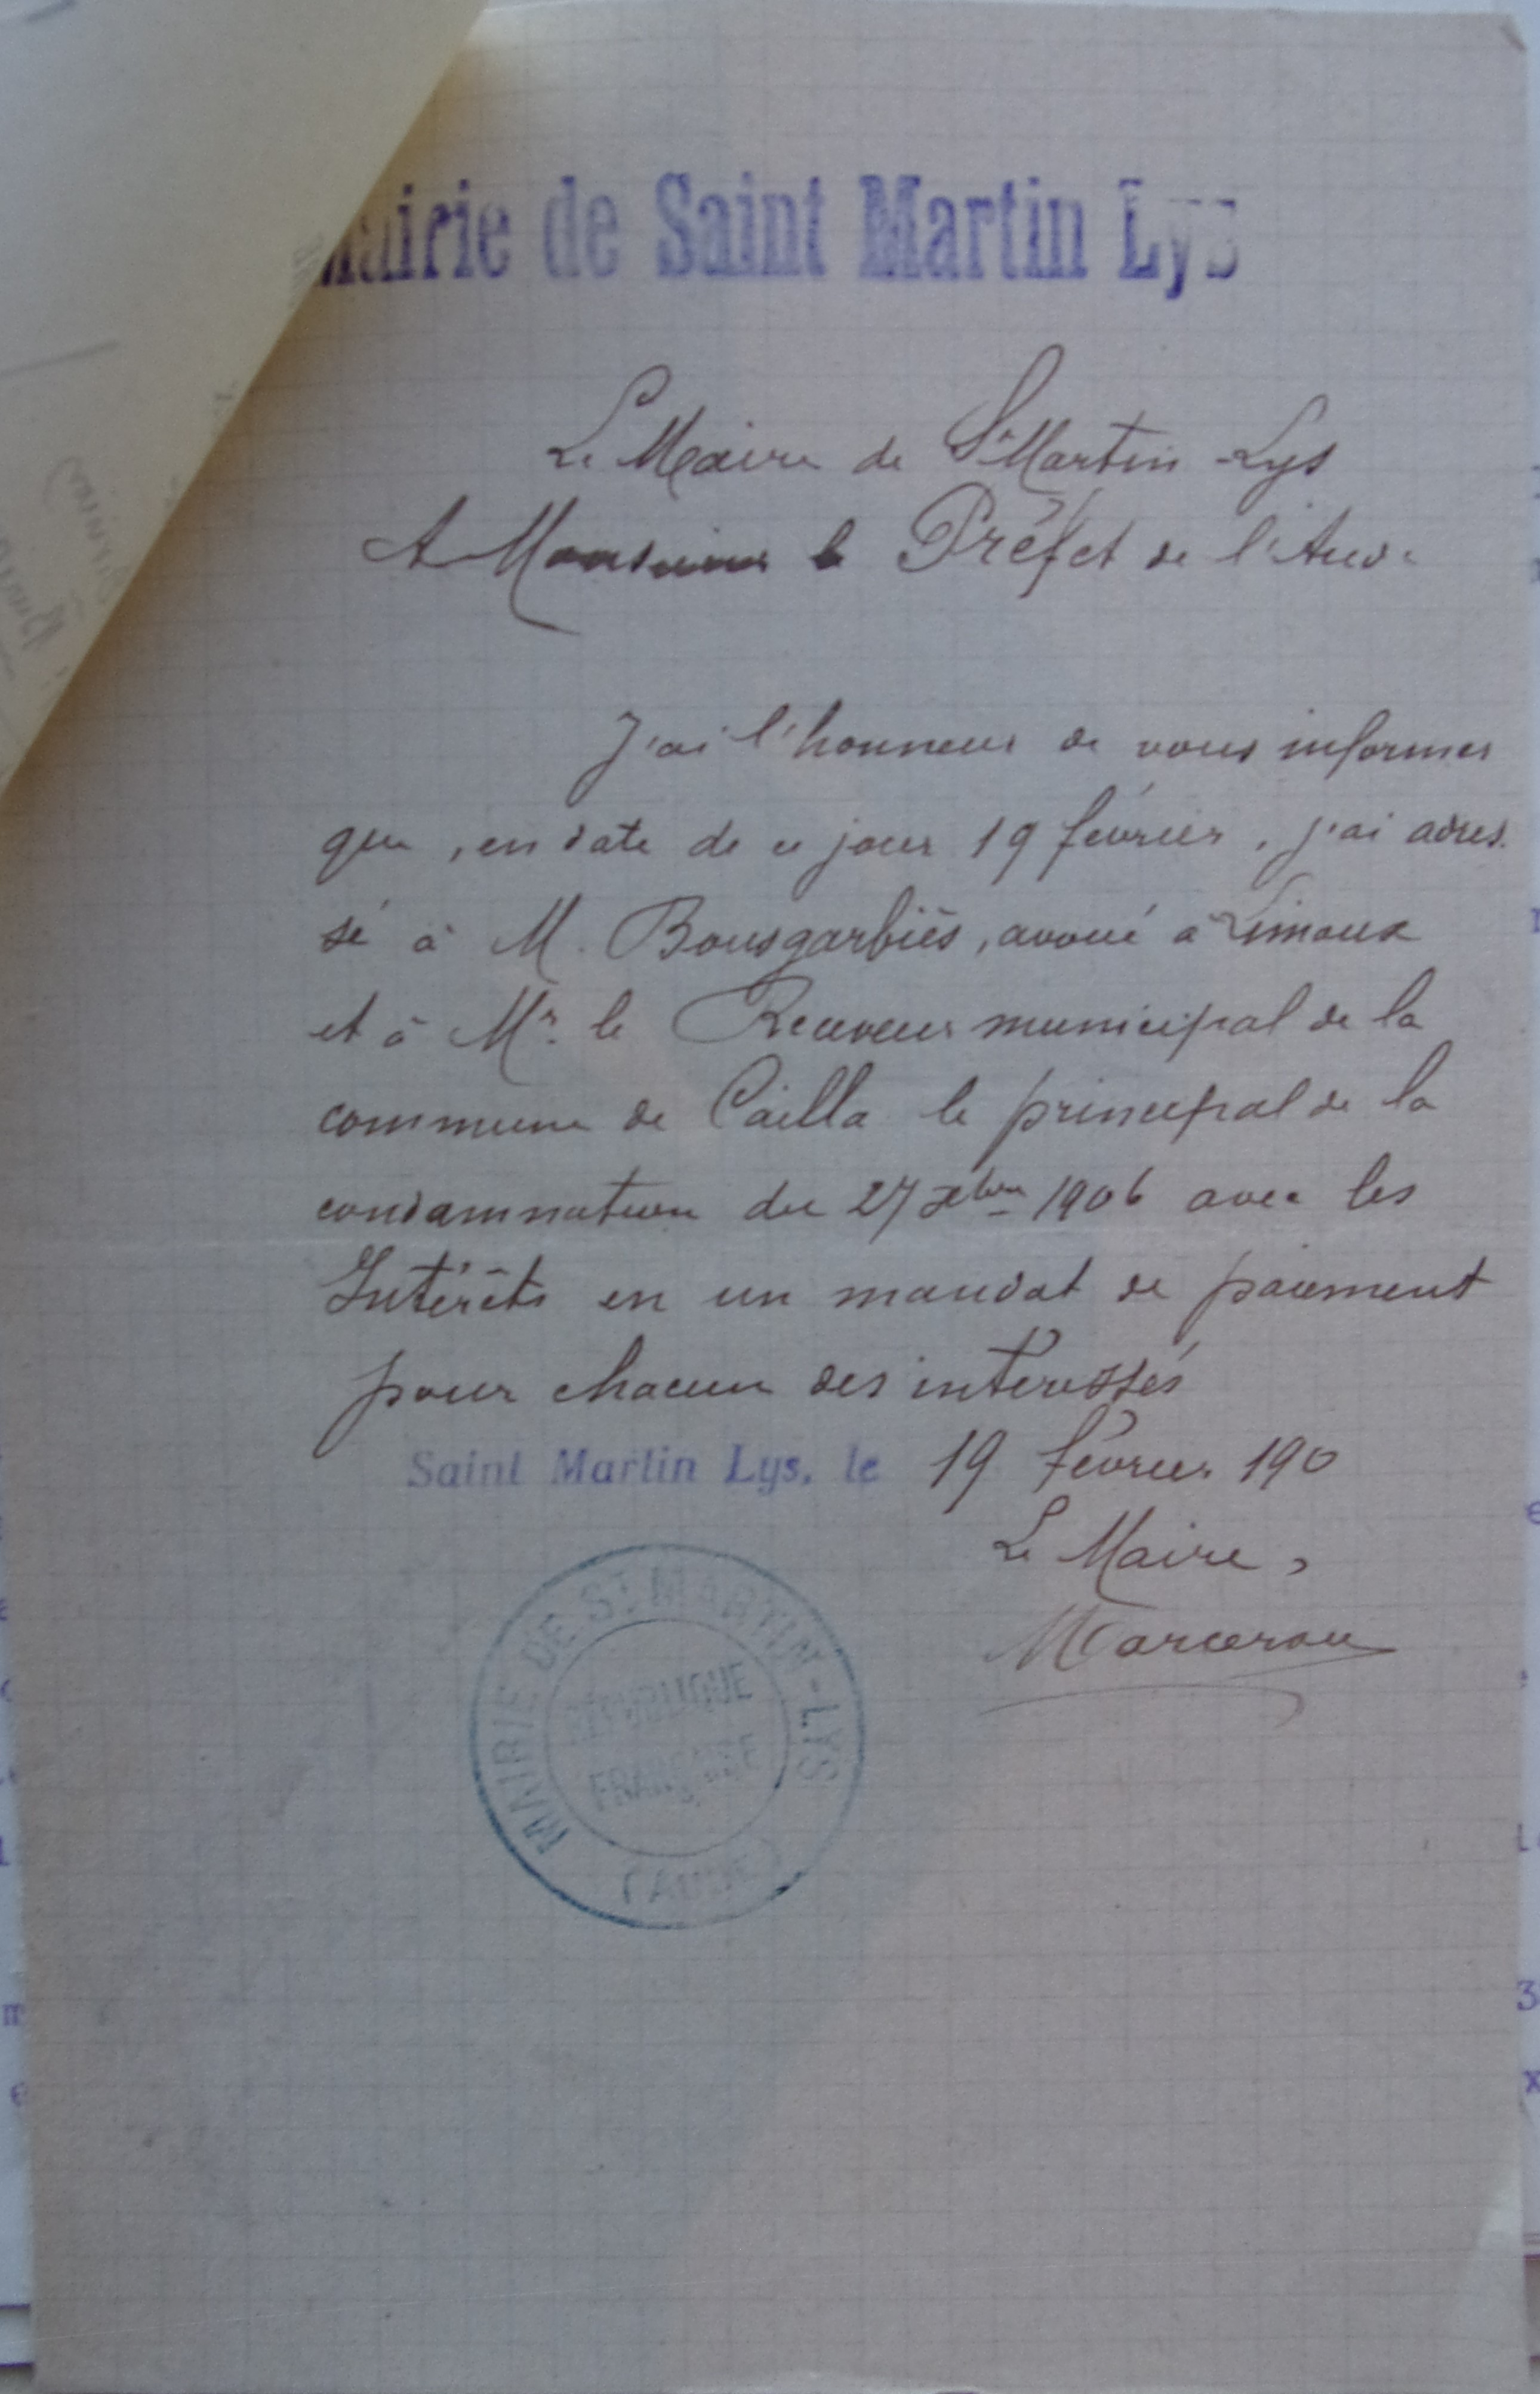 Mairie de Saint Martin Lys
Le Maire de St Martin-Lys
A Monsieur le Préfet de l'Aude
J'ai l'honneur de vous informer
que, en date de ce jour 19 février, j'ai adres-
sé à M. Bousgarbiès, avoué à Limoux
et à Mr. le Receveur municipal de la
commune de Cailla le principal de la
condamnation du 27 Xbre 1906 avec les
Intérêts en un mandat de paiement
pour chacun des intéressés
Saint Martin Lys, le 19 février 190
Le Maire,
Marcerou
MAIRIE DE ST MARTIN-LYS
RÉPUBLIQUE
FRANÇAISE
(AUDE)